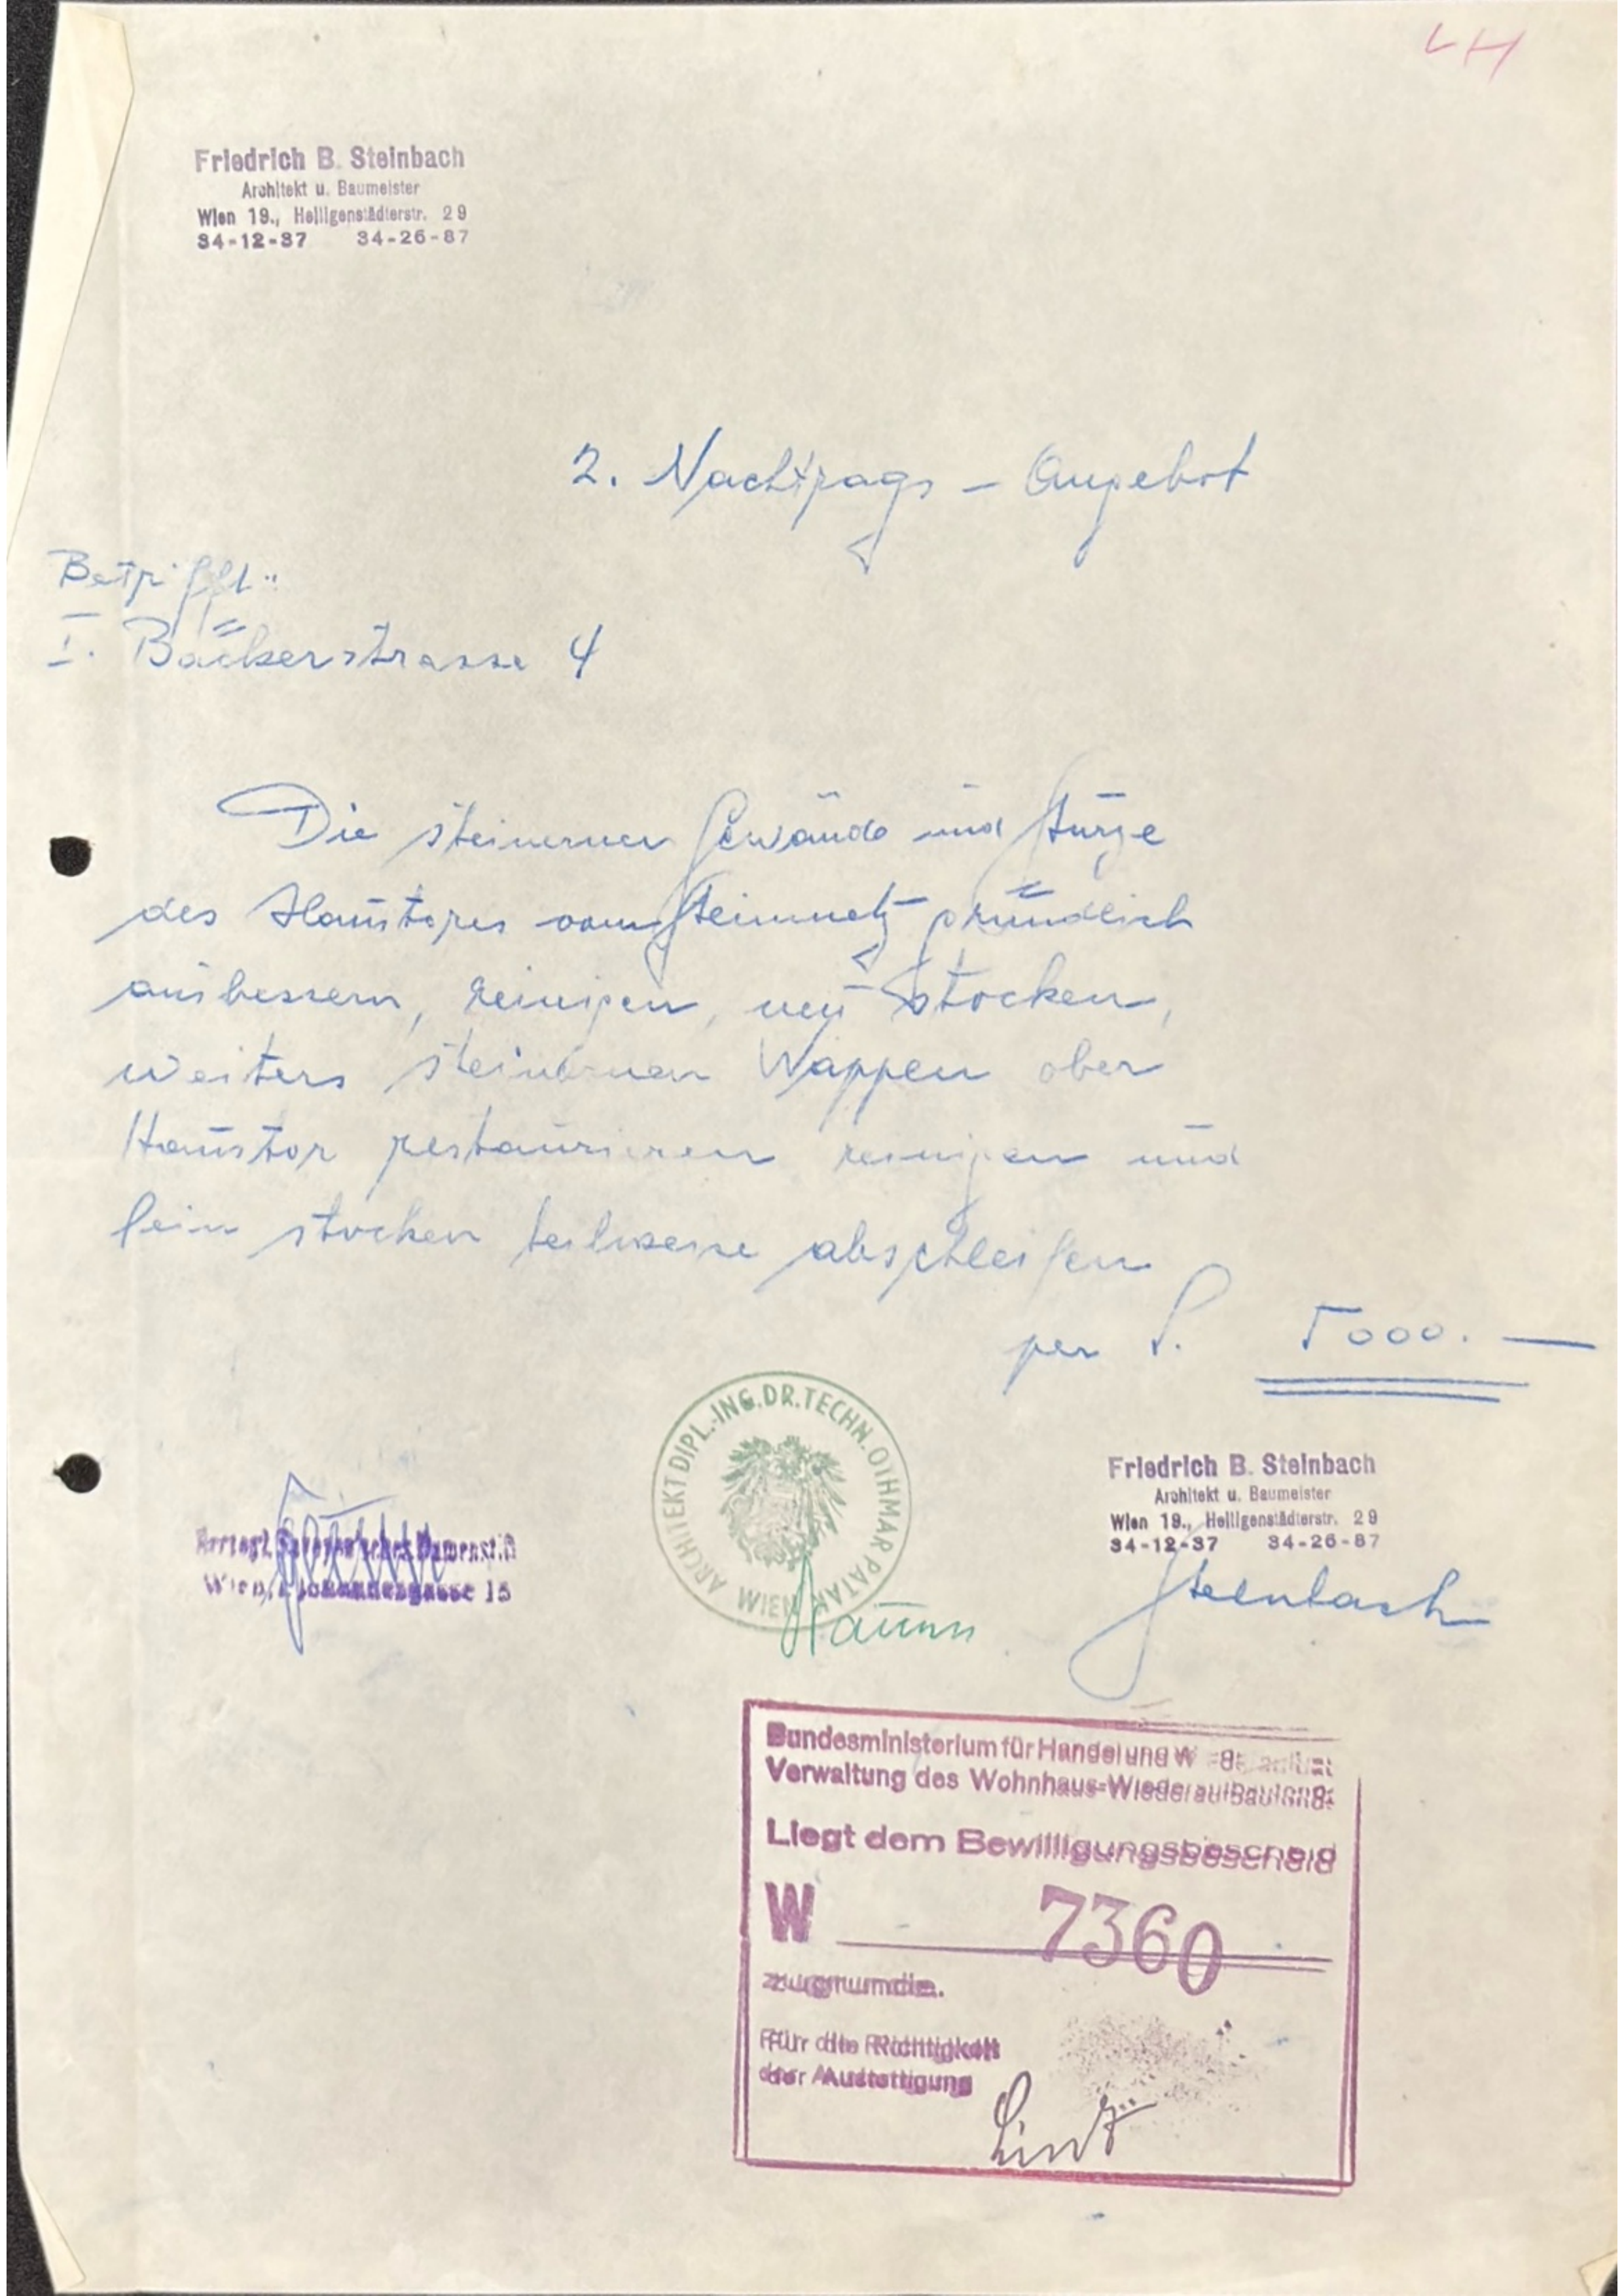 LH
Friedrich B. Steinbach
Architekt u. Baumeister
Wien 19., Heiligenstädterstr. 29
34-12-37 34-26-87
2. Nachtrags - Angebot
Betrifft:
I. Bäckerstrasse 4
Die steinernen Gewände und Stürze
des Haustores vom Steinmetz gründlich
ausbessern, reinigen, neu stocken,
weiters steinernen Wappen ober
Haustor restaurieren reinigen und
fein stocken teilweise abschleifen
per S. 5000.—
ARCHITEKT DIPL.-ING. DR. TECHN. OTHMAR PATAK
WIEN
Friedrich B. Steinbach
Architekt u. Baumeister
Wien 19., Heiligenstädterstr. 29
34-12-37 34-26-87
Steinbach
Herzogl. Savoyen'sches Damenstift
Wien, I. Johannesgasse 15
Bundesministerium für Handel und W
Verwaltung des Wohnhaus-Wiederaufbaufonds
Liegt dem Bewilligungsbescheid
W 7360
zugrunde.
Für die Richtigkeit
der Ausfertigung